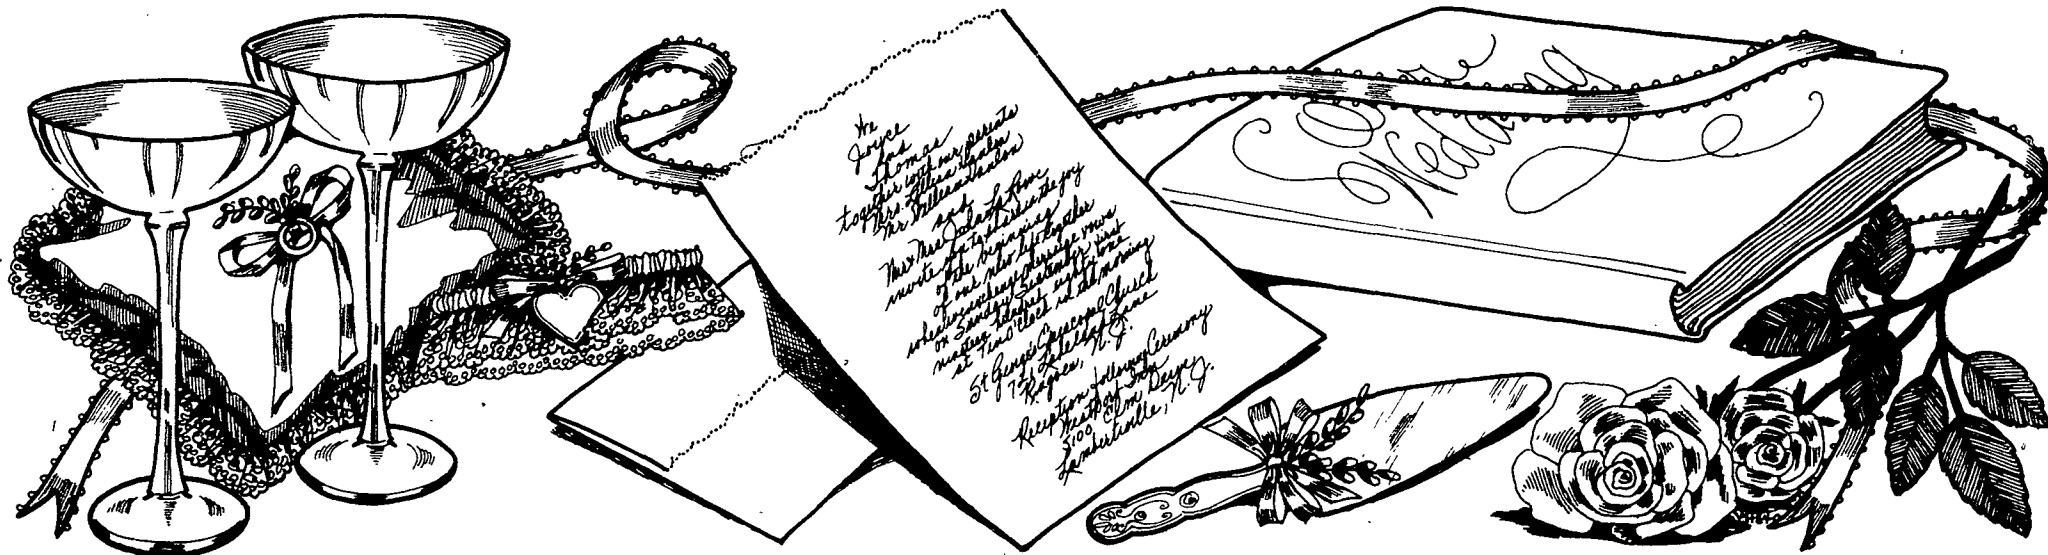 We
Joyce
and
Thomas
together with our parents
Mrs.
Mr William
and
Mr & Mrs. John La
invite you to share in the joy
of the beginning
of our new life together
when we exchange marriage vows
on Sunday September first
nineteen hundred eighty one
at Ten O'Clock in the morning
St George's Episcopal Church
Lakeland Lane
N. J.
Reception following Ceremony
Inn
5100 Elm Drive
Lambertville, N. J.
Our
Wedding